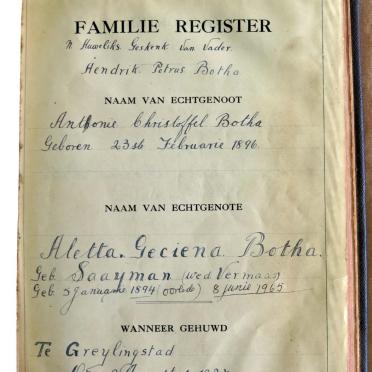 FAMILIE REGISTER
'n Huweliks Geskenk Van Vader
Hendrik Petrus Botha
NAAM VAN ECHTGENOOT
Anthonie Christoffel Botha
Geboren 23st Februarie 1896
NAAM VAN ECHTGENOTE
Aletta Geciena Botha.
Geb. Saayman (wed Vermaas)
Geb 5 Januarie 1894 (oorlede) 8 Junie 1965
WANNEER GEHUWD
Te Greylingstad